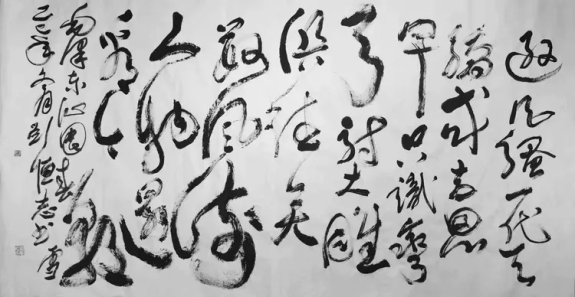 遜風騷一代天
驕成吉思
只識彎
弓射大雕
俱往矣
數風流
人物還
看今朝
毛澤東沁園春雪
年月彭恒志书